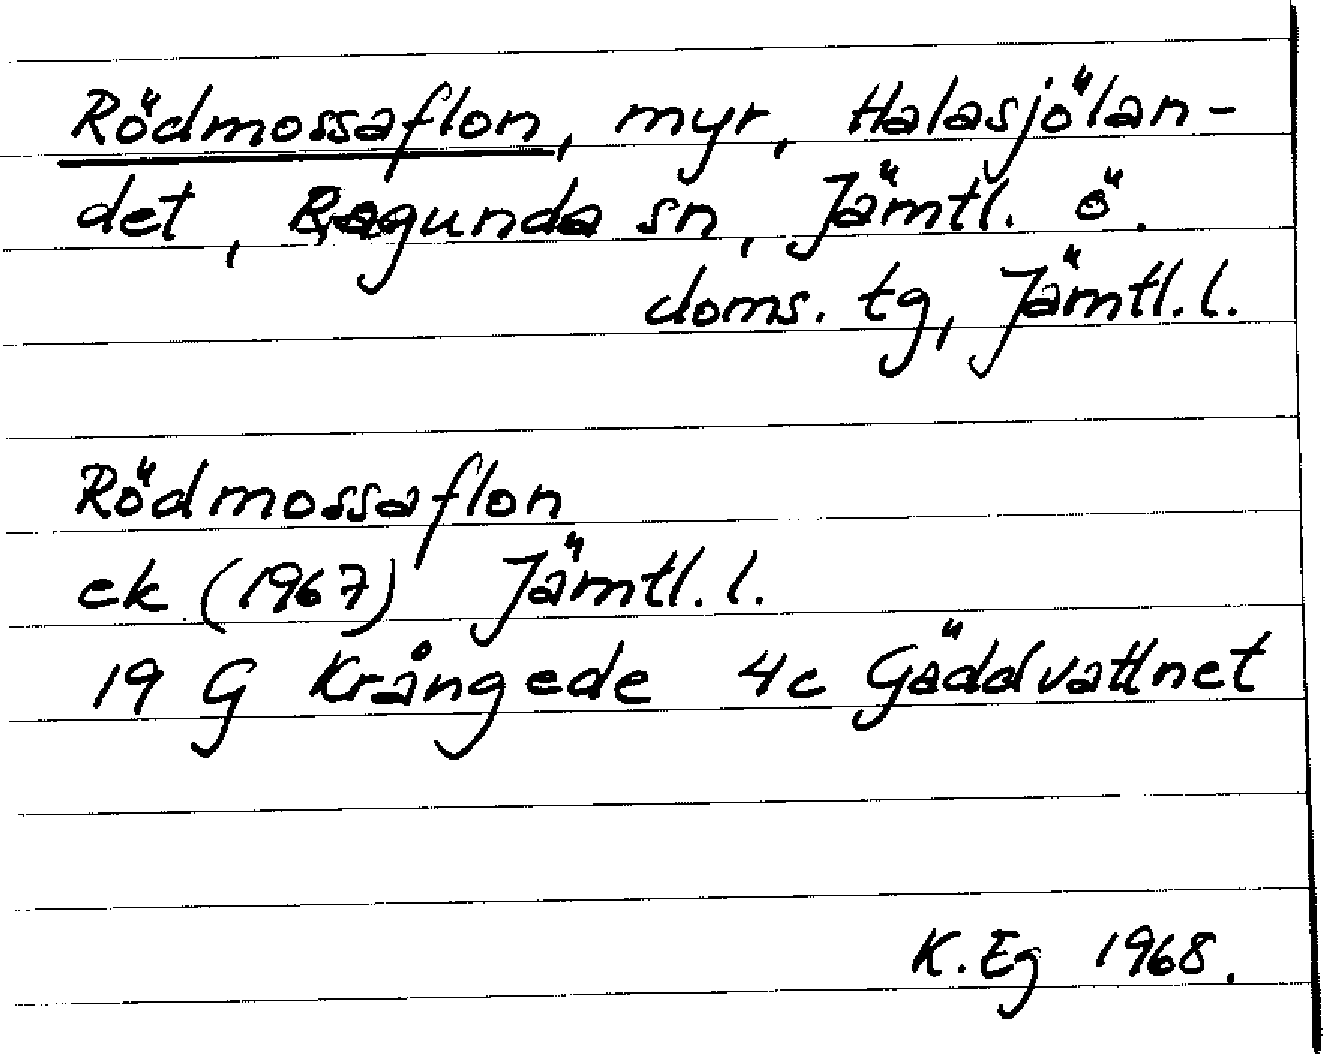 Rödmossaflon, myr, Halasjölan-
det, Ragunda sn, Jämtl. ö.
doms. tg, Jämtl. l.
Rödmossaflon
ek (1967) Jämtl. l.
19 G Krångede 4c Gäddvattnet
K. Eg 1968.